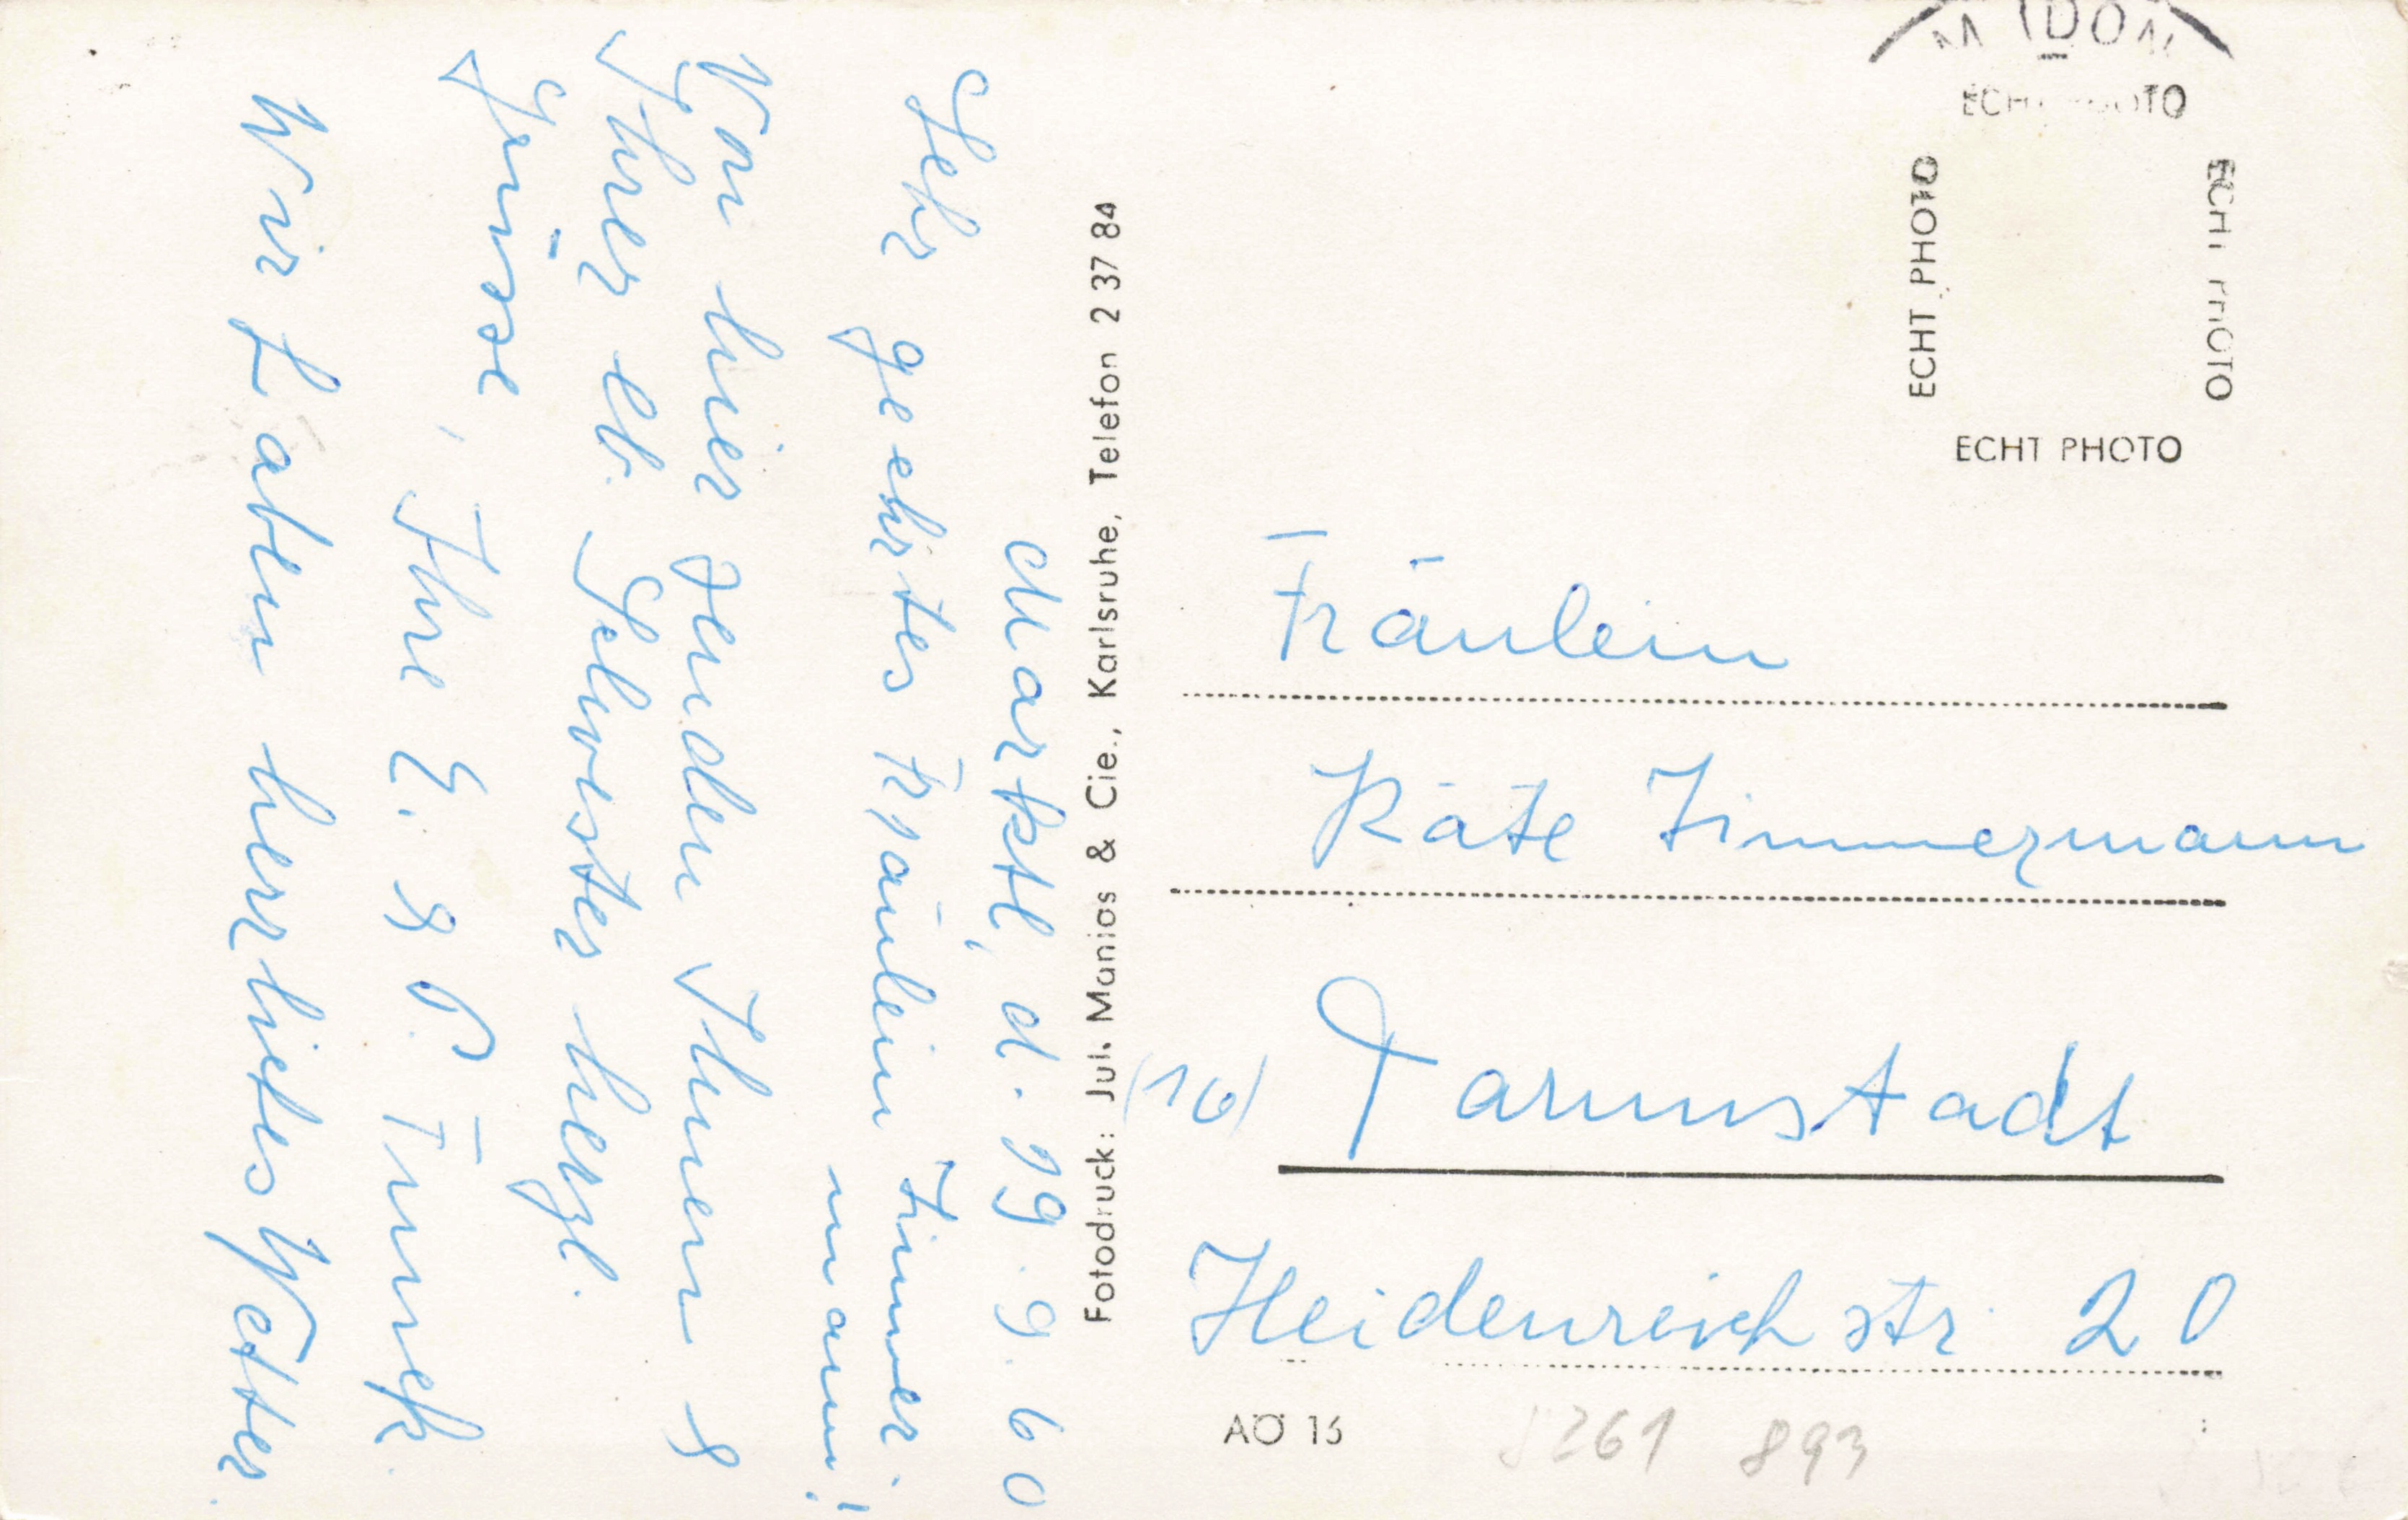 Marktl, d. 19. 9. 60
Sehr geehrtes Fräulein Zimmer-
mann!
Von hier senden Ihnen &
Ihrer lb. Schwester herzl.
Grüsse,
Ihre E. & P. Turnek.
Wir haben herrliches Wetter.
Fotodruck: Jul. Manias & Cie., Karlsruhe, Telefon 2 37 84
ECHT PHOTO
ECHT PHOTO
ECHT PHOTO
ECHT PHOTO
Fräulein
Käte Zimmermann
(16) Darmstadt
Heidenreichstr. 20
AÖ 15
893